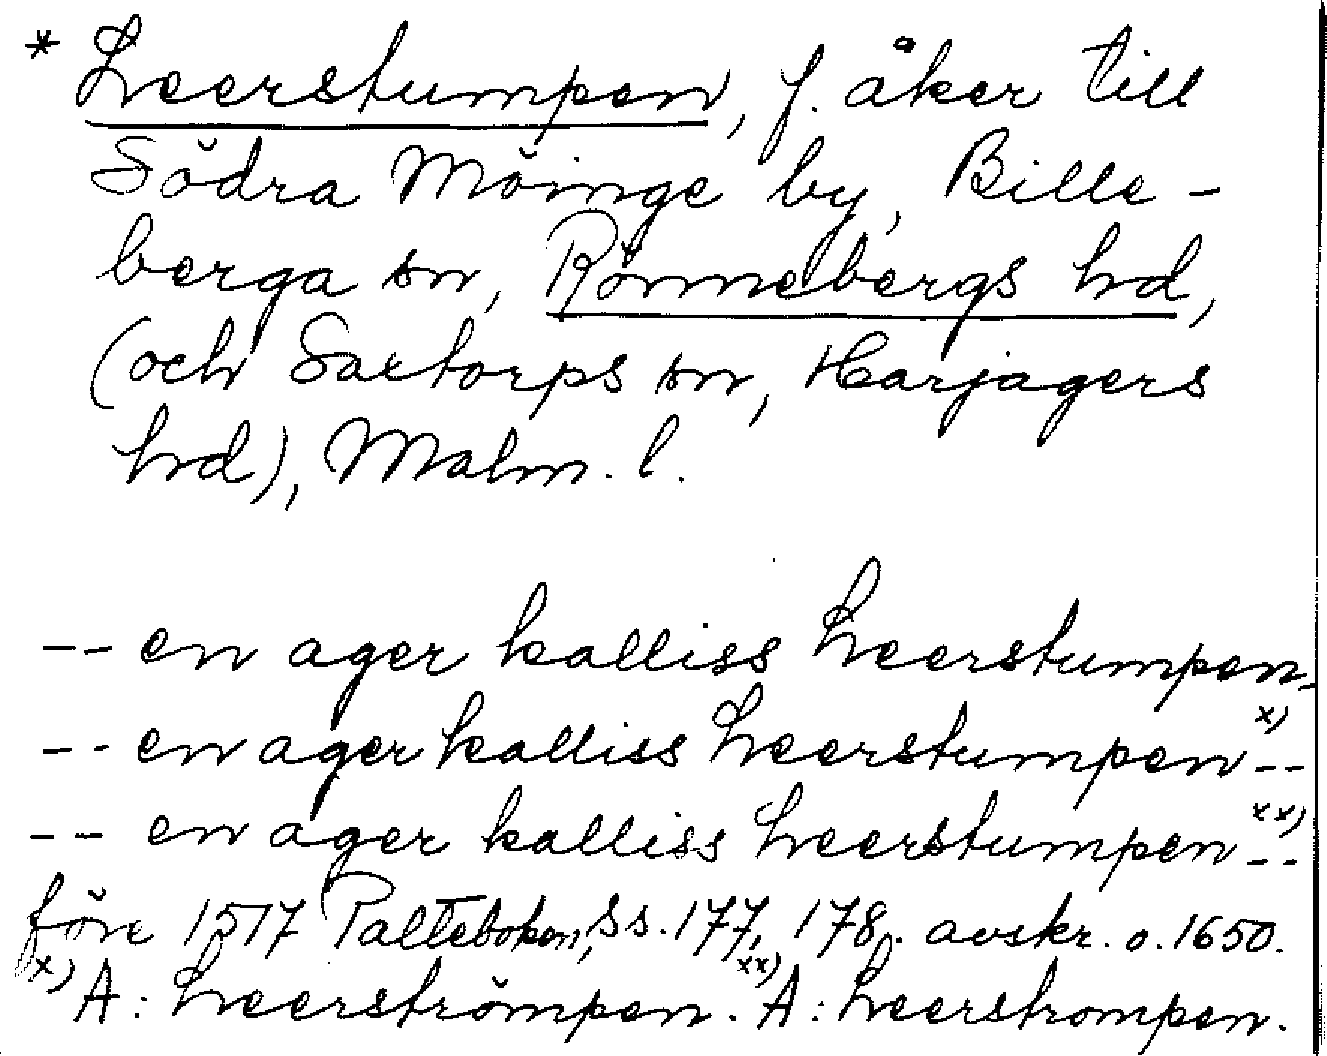 * Leerstumpen, f. åker till
Södra Möinge by, Bille-
berga sn, Rönnebergs hd,
(och Saxtorps sn, Harjagers
hd), Malm. l.
-- en ager kalliss Leerstumpen-
-- en ager kalliss Leerstumpen x) --
-- en ager kalliss Leerstumpen xx) --
före 1517 Palteboken, ss. 177, 178. avskr. o. 1650.
x) A: Leerströmpen. xx) A: Leerstrompen.